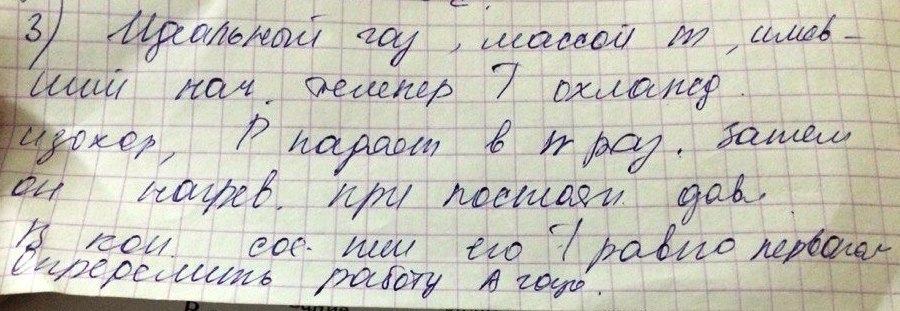 3) Идеальный газ, массой m, имев-
ший нач. темпер T охлажд.
изохор, P падает в n раз. Затем
он нагрев. при постоян. дав.
В кон. сос-нии его T равно первонач
Определить работу A газа.